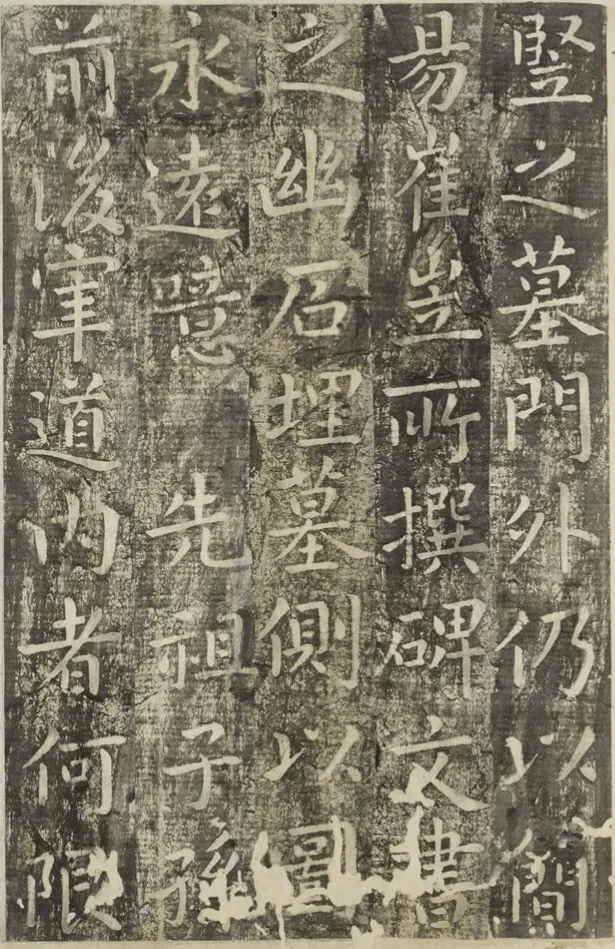 竪之墓門外仍以簡
昜崔豈所撰碑文書
之幽石埋墓側以圖
永遠噫 先祖子孫
前後道內者何限